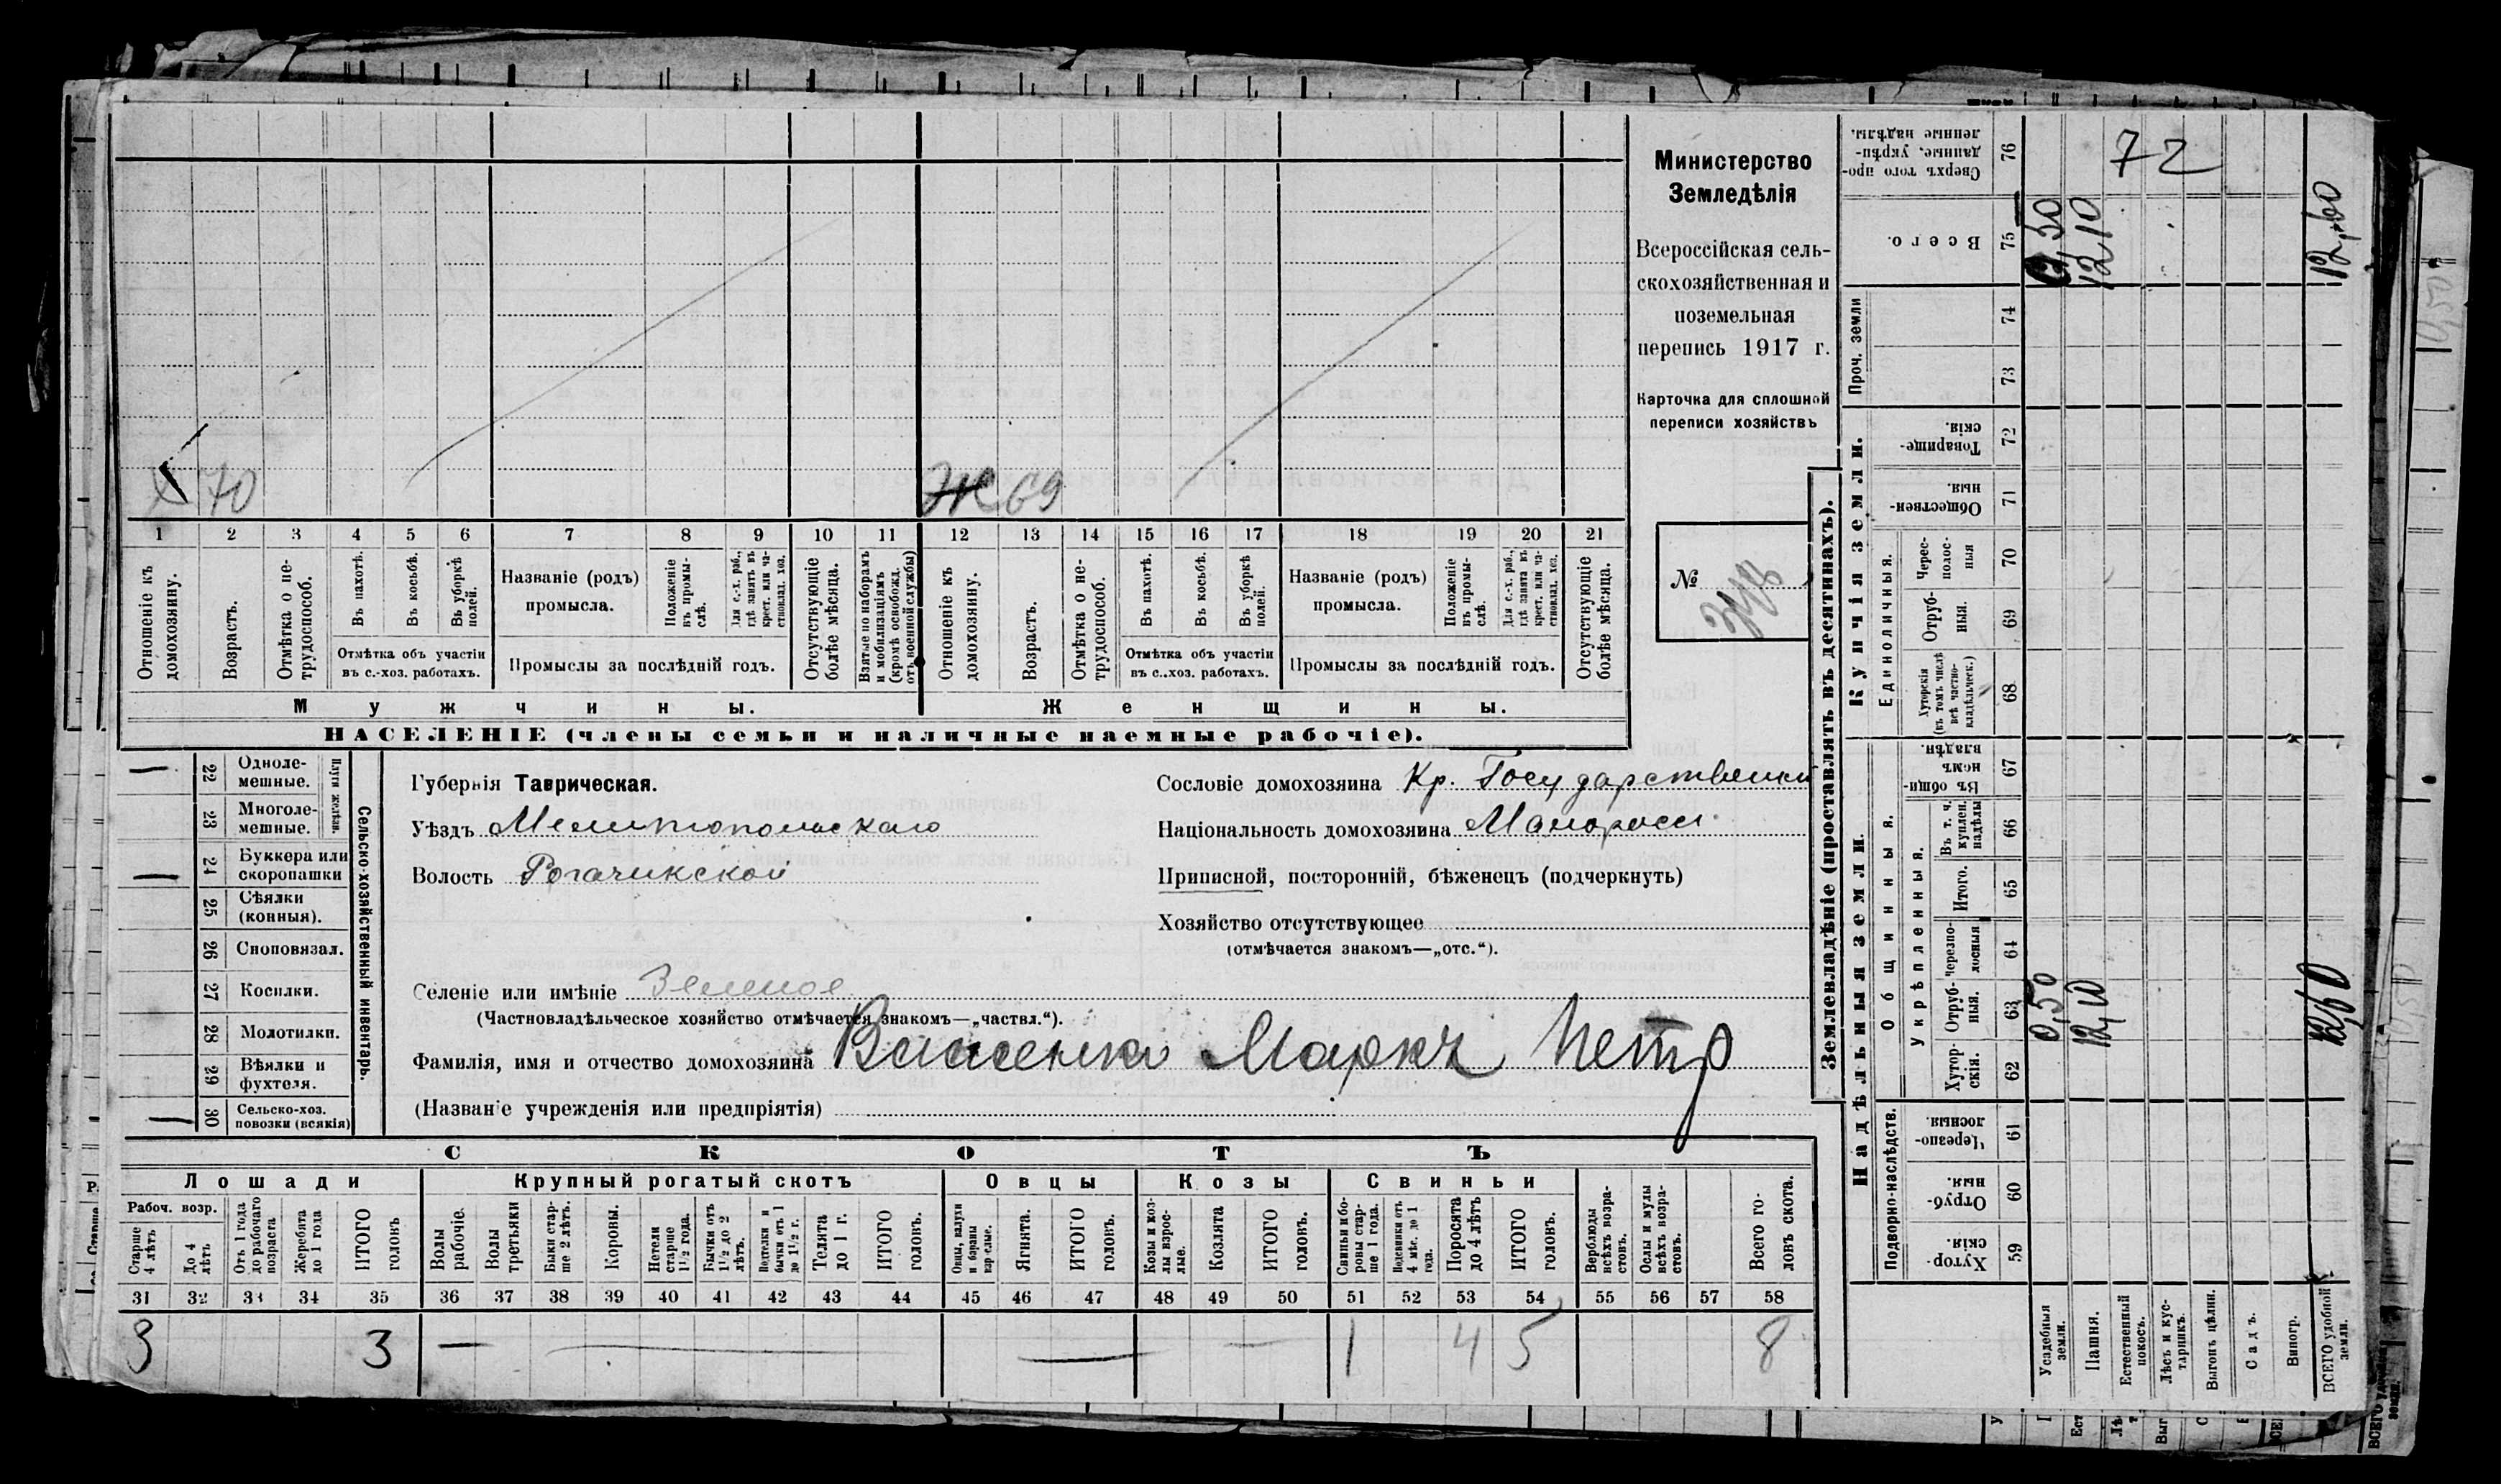 Министерство
Земледѣлія
Всероссійская сель-
скохозяйственная и
поземельная
перепись 1917 г.
Карточка для сплошной
переписи хозяйствъ
№
70
Ж 69
1 2 3 4 5 6 7 8 9 10 11 12 13 14 15 16 17 18 19 20 21
Отношеніе къ домохозяину.
Возрастъ.
Отмѣтка о не-трудоспособ.
Въ пахотѣ.
Въ косьбѣ.
Въ уборкѣ полей.
Отмѣтка объ участіи
въ с.-хоз. работахъ.
Названіе (родъ)
промысла.
Положеніе въ промы-слѣ.
Для с.-х. раб., гдѣ занятъ въ крест. или ча-стновлад. хоз.
Промыслы за послѣдній годъ.
Отсутствующіе болѣе мѣсяца.
Взятые по наборамъ и мобилизаціямъ (кромѣ освобожд. отъ военной службы)
Отношеніе къ домохозяину.
Возрастъ.
Отмѣтка о не-трудоспособ.
Въ пахотѣ.
Въ косьбѣ.
Въ уборкѣ полей.
Отмѣтка объ участіи
въ с.-хоз. работахъ.
Названіе (родъ)
промысла.
Положеніе въ промы-слѣ.
Для с.-х. раб., гдѣ занята въ крест. или ча-стновлад. хоз.
Промыслы за послѣдній годъ.
Отсутствующіе болѣе мѣсяца.
Мужчины.
Женщины.
НАСЕЛЕНІЕ (члены семьи и наличные наемные рабочіе).
22 Одноле-мешные.
23 Многоле-мешные.
Плуги желѣзн.
24 Буккера или скоропашки
25 Сѣялки (конныя).
26 Сноповязал.
27 Косилки.
28 Молотилки.
29 Вѣялки и фухтеля.
30 Сельско-хоз. повозки (всякія)
Сельско-хозяйственный инвентарь.
Губернія Таврическая.
Уѣздъ Мелитопольскаго
Волость Рогачикской
Сословіе домохозяина Кр. Государственный
Національность домохозяина Малоросс.
Приписной, посторонній, бѣженецъ (подчеркнуть)
Хозяйство отсутствующее
(отмѣчается знакомъ—„отс.“).
Селеніе или имѣніе Зеленое
(Частновладѣльческое хозяйство отмѣчается знакомъ—„частвл.“).
Фамилія, имя и отчество домохозяина Власенко Маркъ Петр
(Названіе учрежденія или предпріятія)
СКОТЪ
Лошади
Крупный рогатый скотъ
Овцы
Козы
Свиньи
Рабоч. возр.
Старше 4 лѣтъ
До 4 лѣтъ
Отъ 1 года до рабочаго возраста
Жеребята до 1 года
ИТОГО головъ
Волы рабочіе.
Волы третьяки
Быки стар-ше 2 лѣтъ.
Коровы.
Нетели старше 1½ года.
Бычки отъ 1½ до 2 лѣтъ.
Нетелки и бычки отъ 1 до 1½ г.
Телята до 1 г.
ИТОГО головъ.
Овцы, валухи и бараны взрослые.
Ягнята.
ИТОГО головъ.
Козы и коз-лы взрос-лые.
Козлята
ИТОГО головъ.
Свиньи и бо-ровы стар-ше 1 года.
Подсвинки отъ 4 мѣс. до 1 года.
Поросята до 4 лѣтъ
ИТОГО головъ.
Верблюды всѣхъ возра-стовъ.
Ослы и мулы всѣхъ возра-стовъ.
Всего го-ловъ скота.
31 32 33 34 35 36 37 38 39 40 41 42 43 44 45 46 47 48 49 50 51 52 53 54 55 56 57 58
3 3 — — — — 1 4 5 8
Землевладѣніе (проставлять въ десятинахъ).
Надѣльныя земли.
Купчія земли.
Проч. земли
Подворно-наслѣдств.
Общинныя.
Укрѣпленныя.
Единоличныя.
Сверхъ того про-данные, укрѣп-ленные надѣлы. 76
Всего. 75
74
73
Товарище-скія. 72
Обществен-ныя. 71
Черес-полос-ныя 70
Отруб-ныя. 69
Хуторскія (въ томъ числѣ всѣ частно-владѣльческ.) 68
Въ общин-номъ владѣн. 67
Въ т. ч. куплен. надѣлы 66
Итого. 65
черезпо-лосныя 64
Отруб-ныя. 63
Хутор-скія. 62
Черезпо-лосныя 61
Отруб-ныя. 60
Хутор-скія. 59
72
0,50
12 10
12,60
0,50
12,10
12,60
Усадебныя земли.
Пашня.
Естественный покосъ.
Лѣсъ и кус-тарникъ.
Выгонъ цѣлин.
Садъ.
Виногр.
ВСЕГО удобной земли.